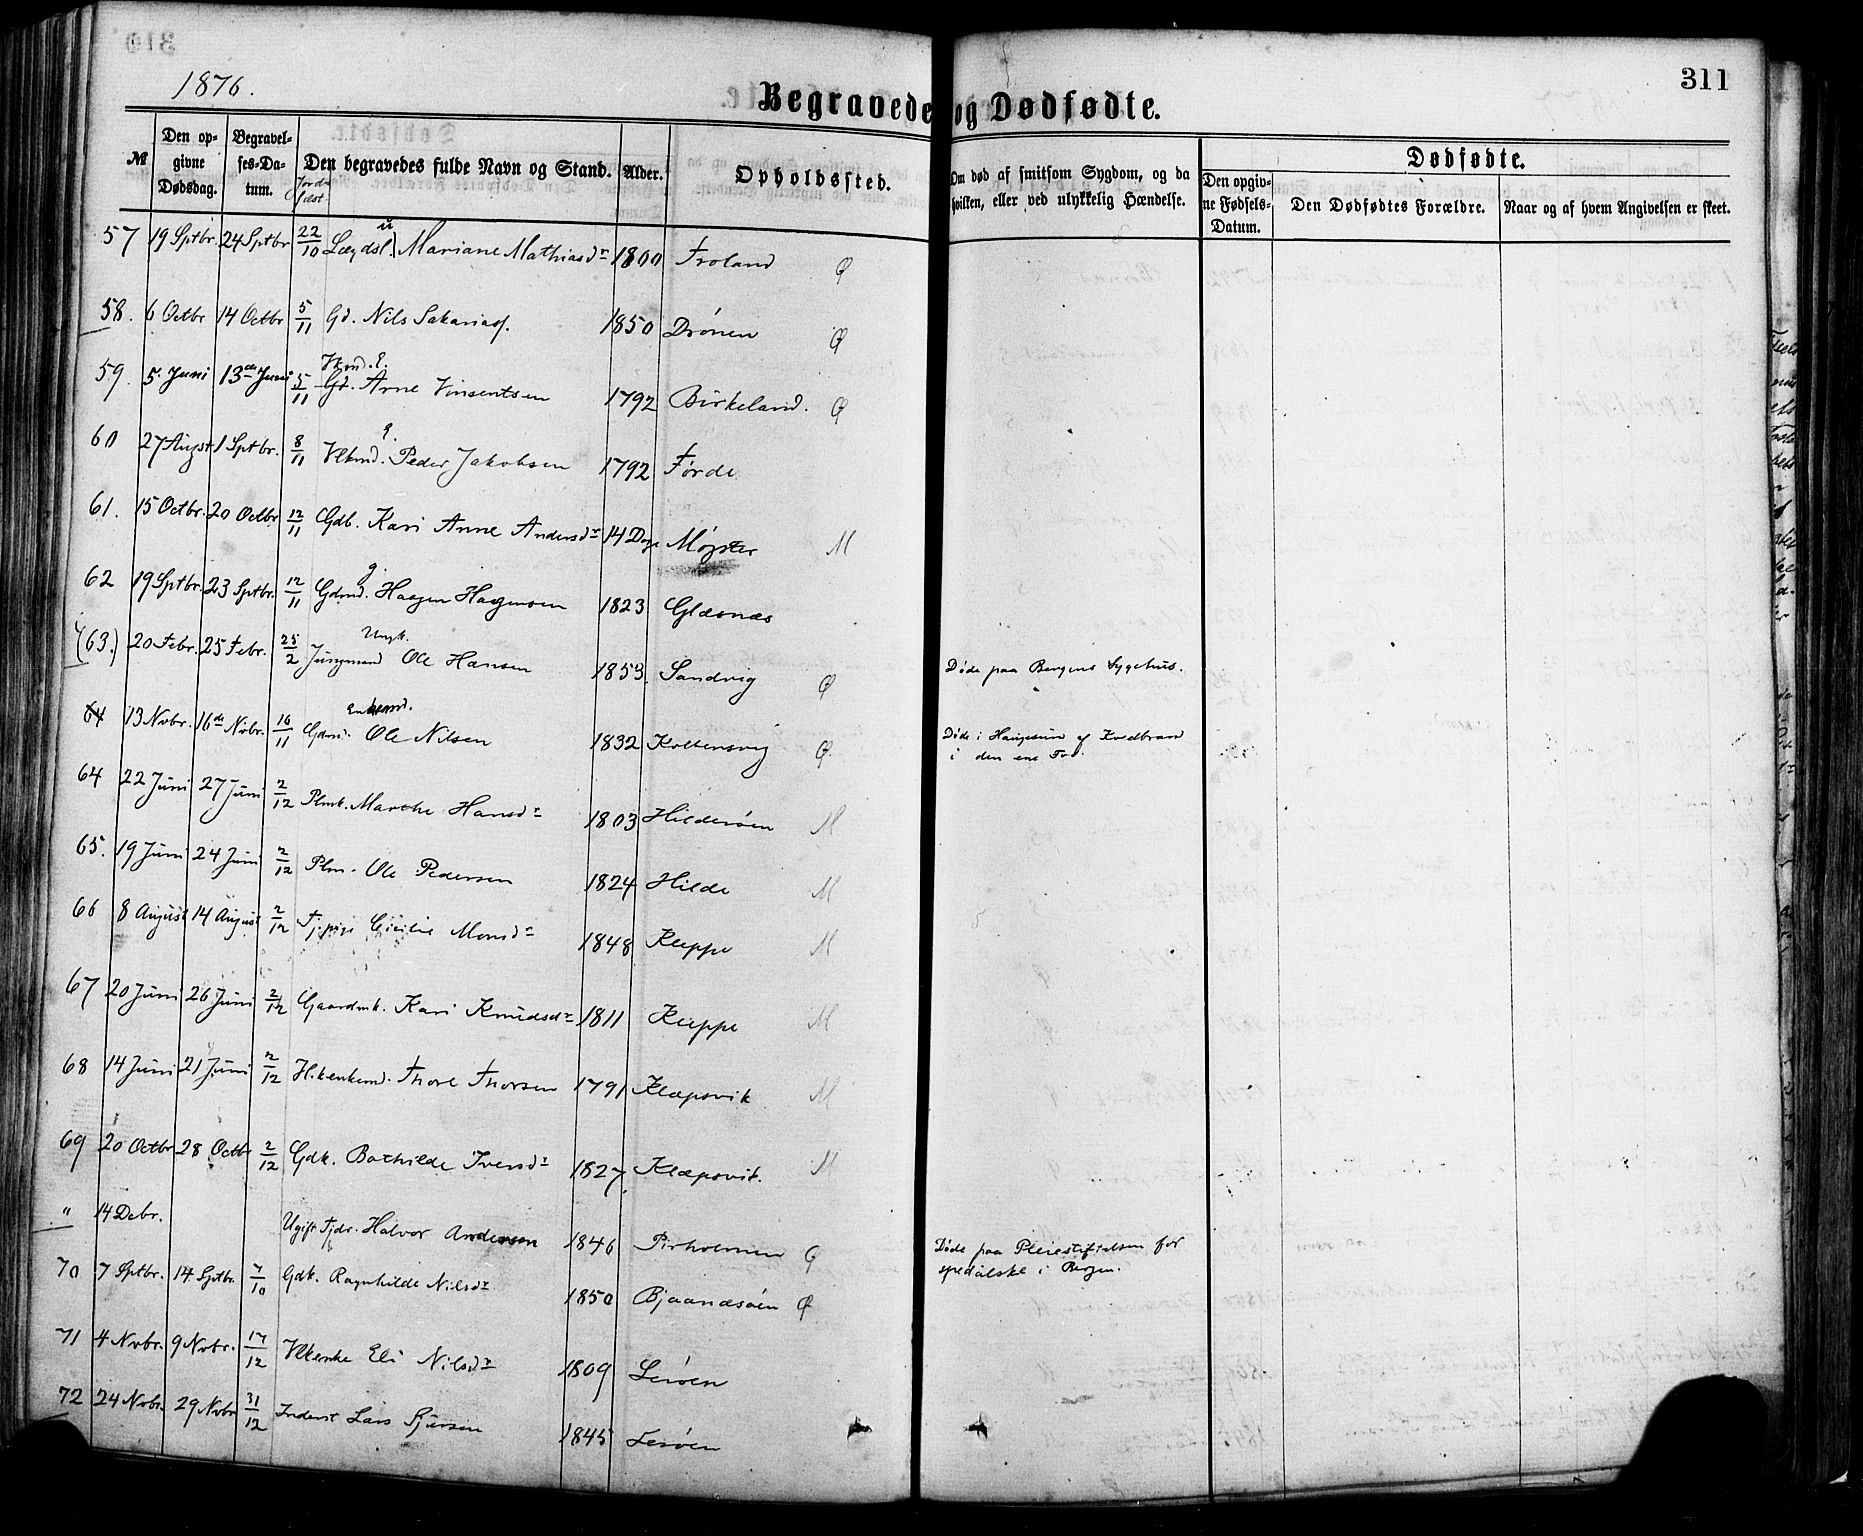 311
1876.
Begravede og Dødfødte.
№ Den opgivne Dødsdag. Begravelses-Datum. Jordfæst. Den begravedes fulde Navn og Stand. Alder. Opholdssted. Om død af smitsom Sygdom, og da hvilken, eller ved ulykkelig Hændelse. Dødfødte. Den opgivne Fødsels-Datum. Den Dødfødtes Forældre. Naar og af hvem Angivelsen er skeet.
57 19 Sptbr. 24 Sptbr 22/10 Lægdsl. u Mariane Mathiasdr 1800 Troland Ø
58. 6 Octbr 14 Octbr 5/11 Gd. Nils Sakarias. 1850 Drønen Ø
59. 5. Juni 13de Juni 5/11 Gd. Arne Vinsentsen 1792 Birkeland. Ø
60 27 August 1 Sptbr. 8/11 g. Peder Jakobsen 1792 Førde
61. 15 Octbr. 20 Octbr 12/11 Gdb. Kari Anne Andersdr 14 Dage Møgster M
62 19 Sptbr. 23 Sptbr. 12/11 Gdmd. g. Haagen Haagensen 1823 Glæsnæs
(63.) 20 Febr. 25 Febr. 25/2 Ungk. Jungmand Ole Hansen 1853. Sandvig Ø Døde paa Bergens Sygehus.
64 13 Nvbr. 16de Nvbr. 16/11 Gdmd. Enkemd. Ole Nilsen 1832 Koltensvig Ø Døde i Haugesund af Koldbrand
i den ene Fod.
64 22 Juni 27 Juni 2/12 Plmk. Marthe Hansdr 1803 Hilderøen M
65. 19 Juni 24 Juni 2/12 Plm. Ole Pedersen 1824 Hilde M
66 8 August 14 August 2/12 Tj.pige Cicilie Monsdr 1848 Kleppe M
67 20 Juni 26 Juni 2/12 Gaardmk. Kari Knudsdr 1811 Kleppe M
68 14 Juni 21 Juni 2/12 Thore Thorsen 1791 Klæpsvik M
69 20 Octbr 28 Octbr 2/12 Gdk. Bothilde Iversdr 1827. Klæpsvik. M
" 14 Debr. Ugift Fjdr. Halvor Andersen 1846 Pirholmen Ø Døde paa Pleiestiftelsen for
spedalske i Bergen.
70 7 Sptbr. 14 Sptbr. 7/10 Gdk. Ragnhilde Nilsdr 1850 Bjaanæsøen Ø
71 4 Nvbr. 9 Nvbr. 17/12 Eli Nilsdr 1809 Lerøen
72 24 Nvbr. 29 Nvbr 31/12 Inderst Lars Sjursen 1845 Lerøen